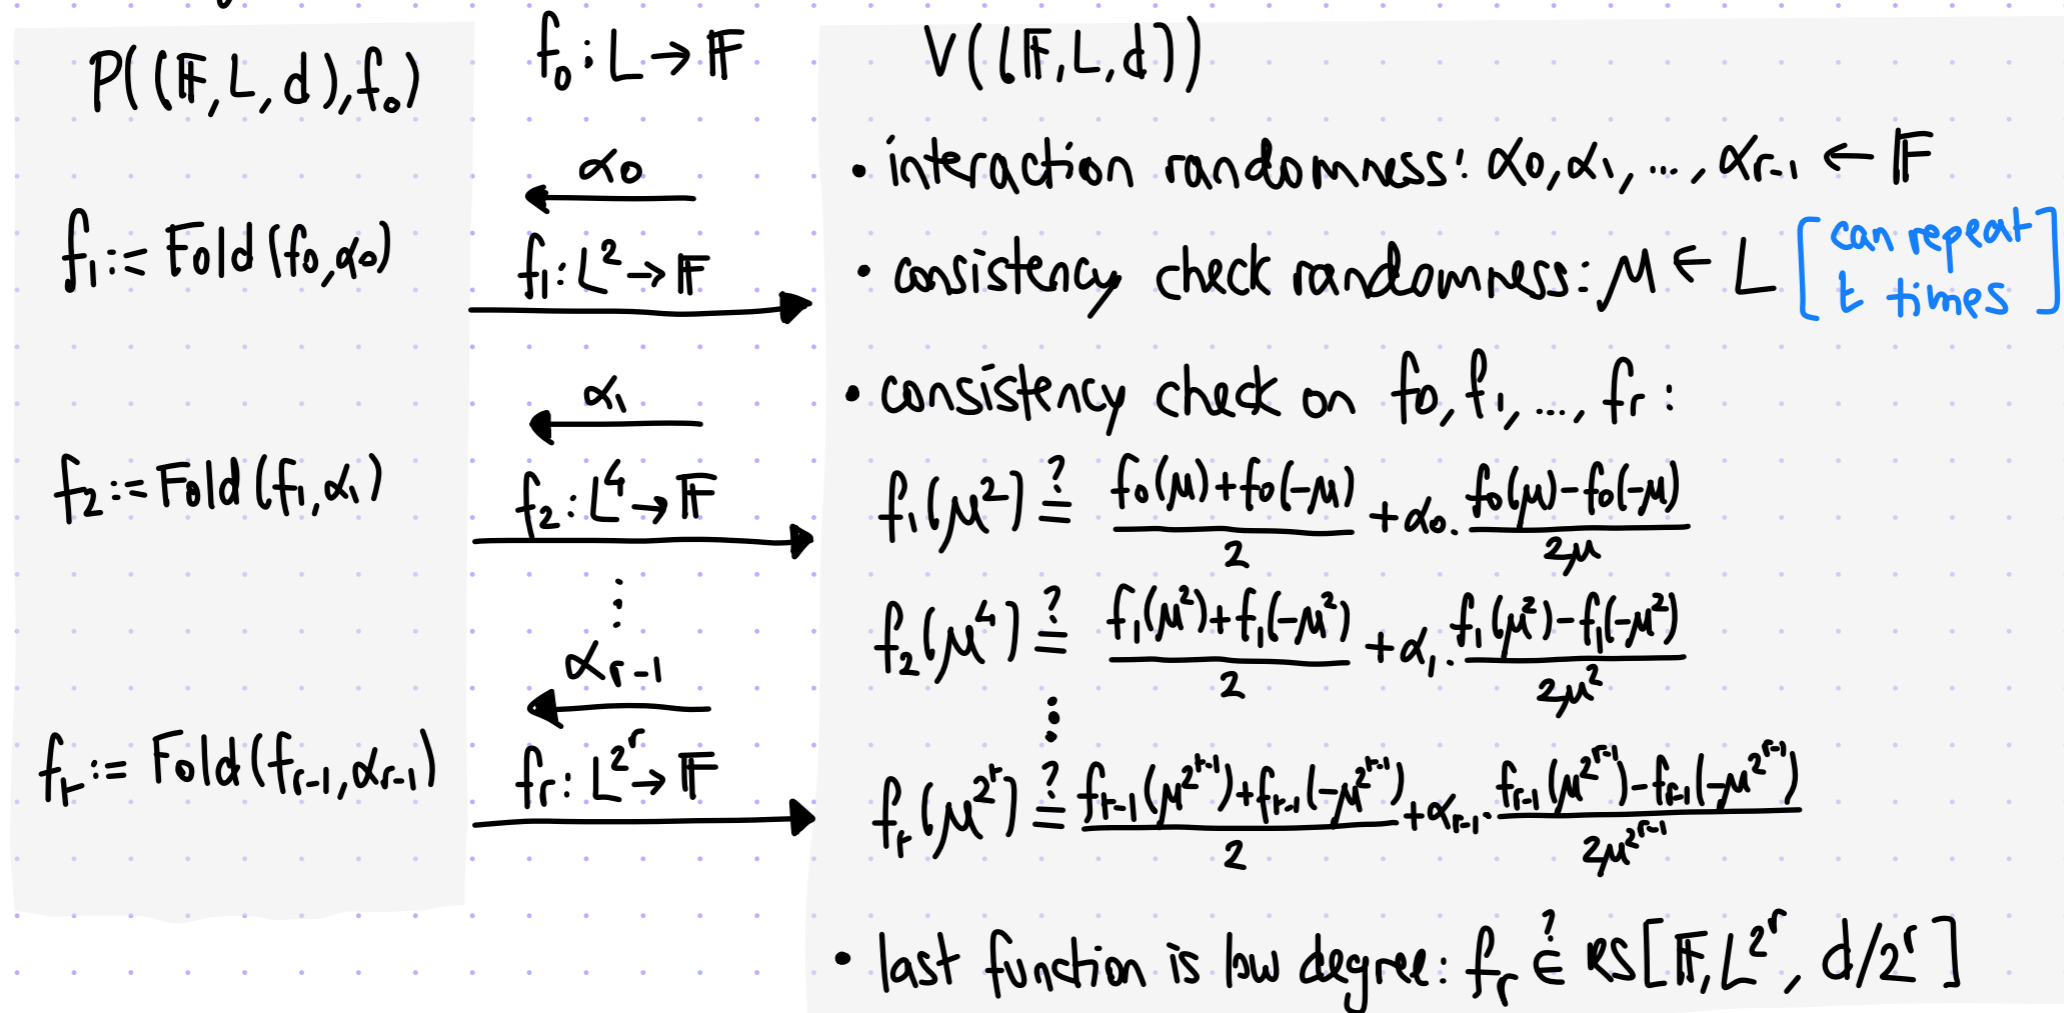 P((𝔽,L,d),f₀)
f₁ := Fold(f₀,α₀)
f₂ := Fold(f₁,α₁)
fᵣ := Fold(fᵣ₋₁,αᵣ₋₁)
f₀: L → 𝔽
α₀
f₁: L² → 𝔽
α₁
f₂: L⁴ → 𝔽
⋮
αᵣ₋₁
fᵣ: L^{2^r} → 𝔽
V((𝔽,L,d))
• interaction randomness: α₀,α₁,...,αᵣ₋₁ ← 𝔽
• consistency check randomness: μ ← L [can repeat
t times]
• consistency check on f₀,f₁,...,fᵣ:
f₁(μ²) ≟ (f₀(μ)+f₀(-μ))/2 + α₀·(f₀(μ)-f₀(-μ))/2μ
f₂(μ⁴) ≟ (f₁(μ²)+f₁(-μ²))/2 + α₁·(f₁(μ²)-f₁(-μ²))/2μ²
⋮
fᵣ(μ^{2^r}) ≟ (fᵣ₋₁(μ^{2^{r-1}})+fᵣ₋₁(-μ^{2^{r-1}}))/2 + αᵣ₋₁·(fᵣ₋₁(μ^{2^{r-1}})-fᵣ₋₁(-μ^{2^{r-1}}))/2μ^{2^{r-1}}
• last function is low degree: fᵣ ∈? RS[𝔽,L^{2^r}, d/2^r]